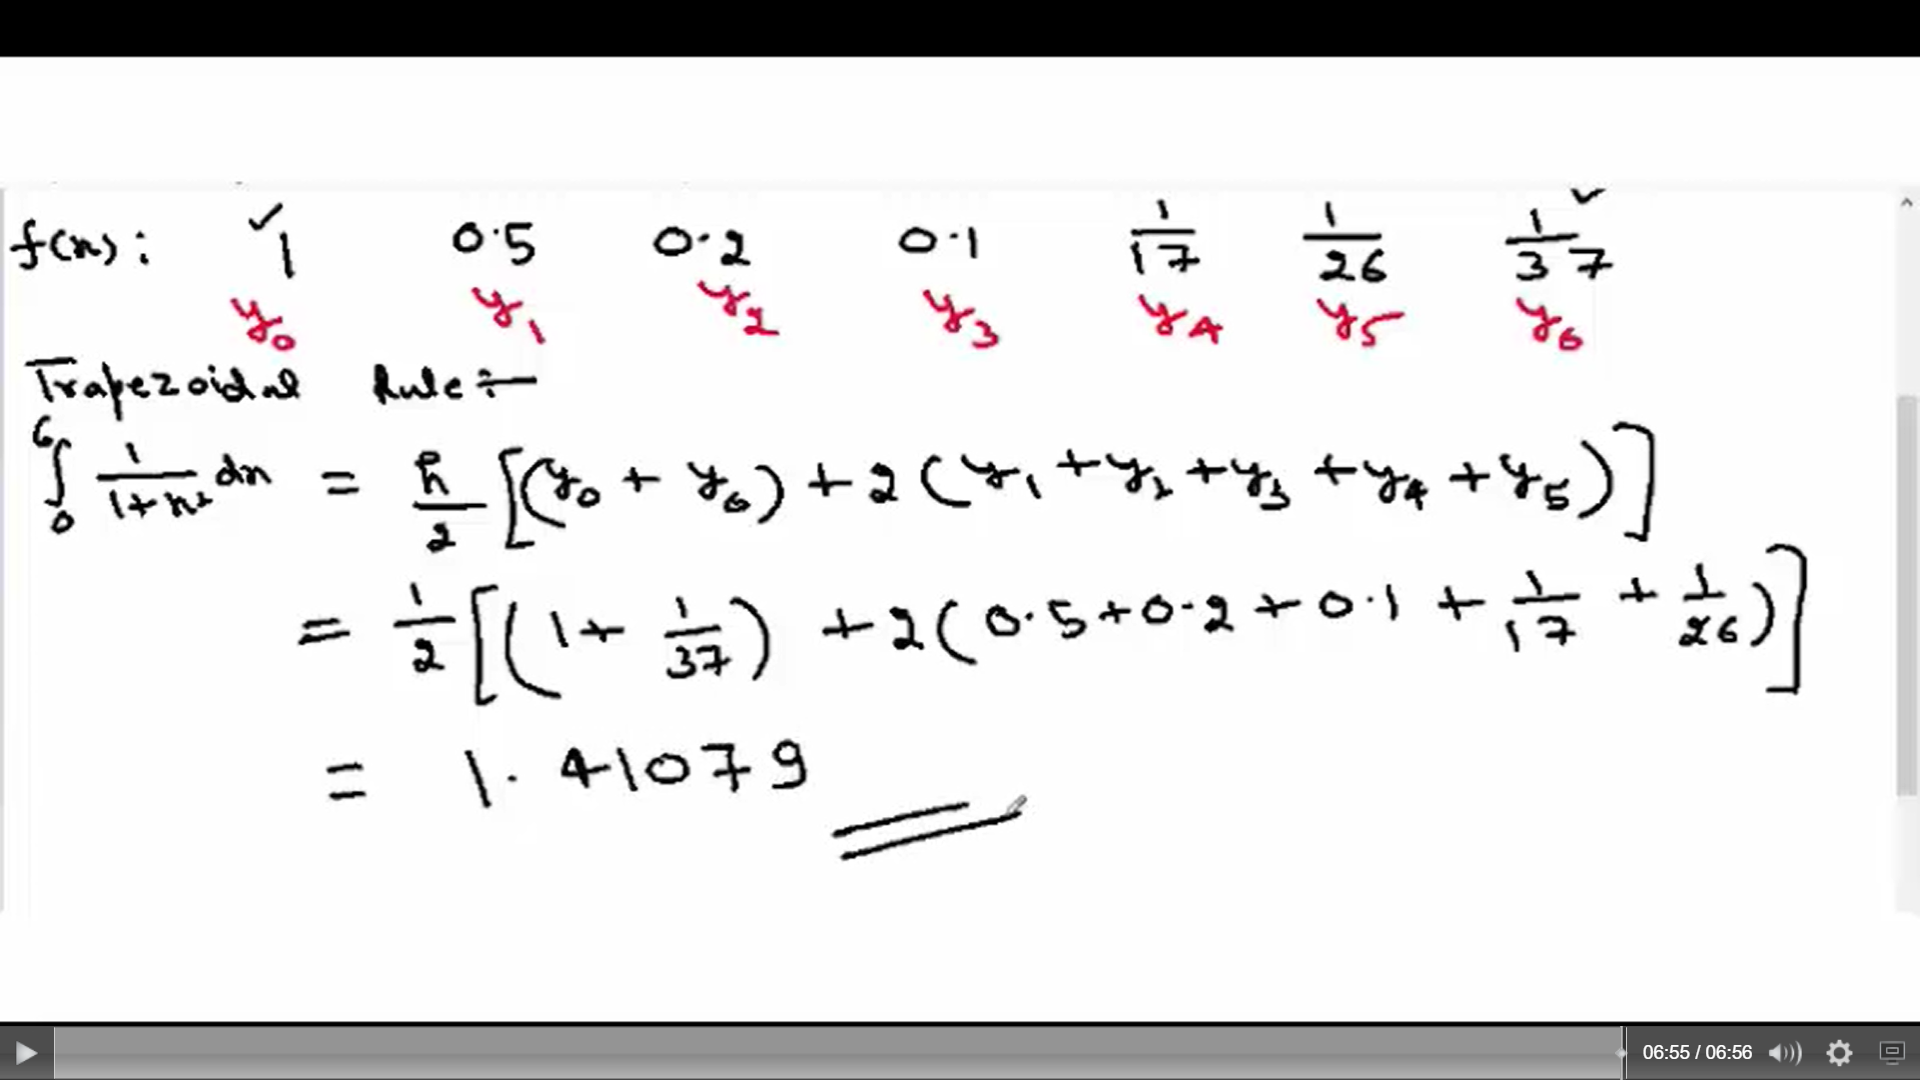 f(x): 1 0.5 0.2 0.1 1/17 1/26 1/37
y₀ y₁ y₂ y₃ y₄ y₅ y₆
Trapezoidal Rule:-
∫₀⁶ 1/(1+x²) dx = h/2 [(y₀ + y₆) + 2(y₁ + y₂ + y₃ + y₄ + y₅)]
= 1/2 [(1 + 1/37) + 2(0.5 + 0.2 + 0.1 + 1/17 + 1/26)]
= 1.41079
06:55 / 06:56